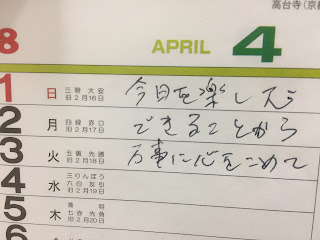 高台寺(京
8 APRIL 4
1 日 三碧 大安 今日を楽しもう
旧2月16日
2 月 四緑 赤口 できることから
旧2月17日
3 火 五黄 先勝 万事に心をこめて
旧2月18日
4 水 三りんぼう
六白 友引
旧2月19日
5 木 清明
七赤 先負
旧2月20日
6 金